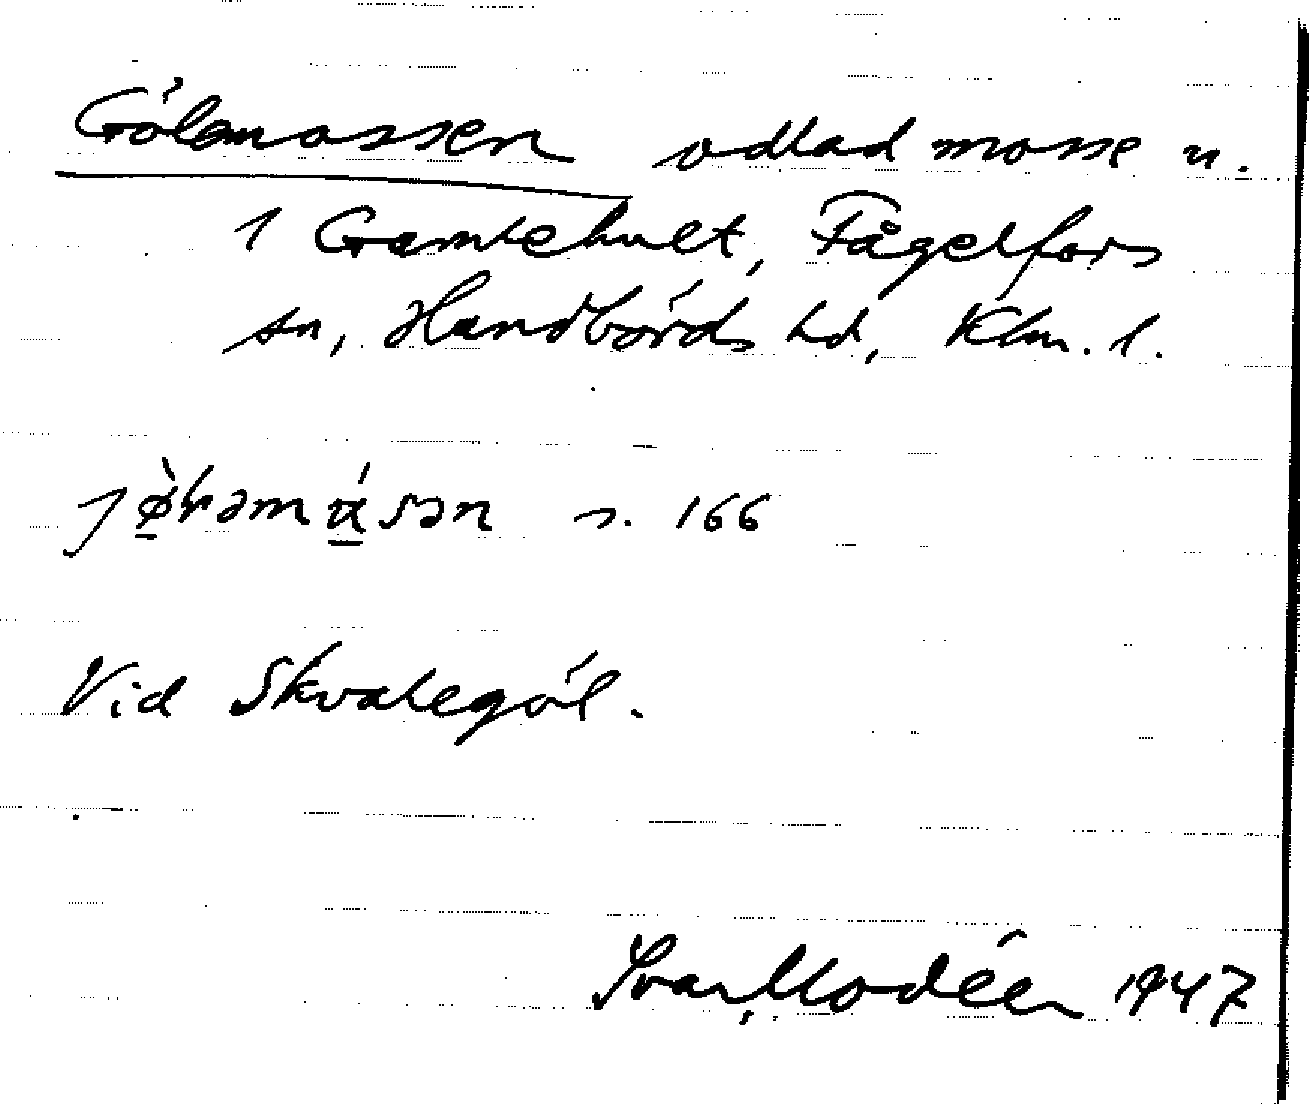 Gölamossen odlad mosse u.
1 Gamlehult, Fågelfors
sn, Handbörds hd, Klm. l.
s. 166
Vid Skvalegöl.
Ivar Modéer 1947